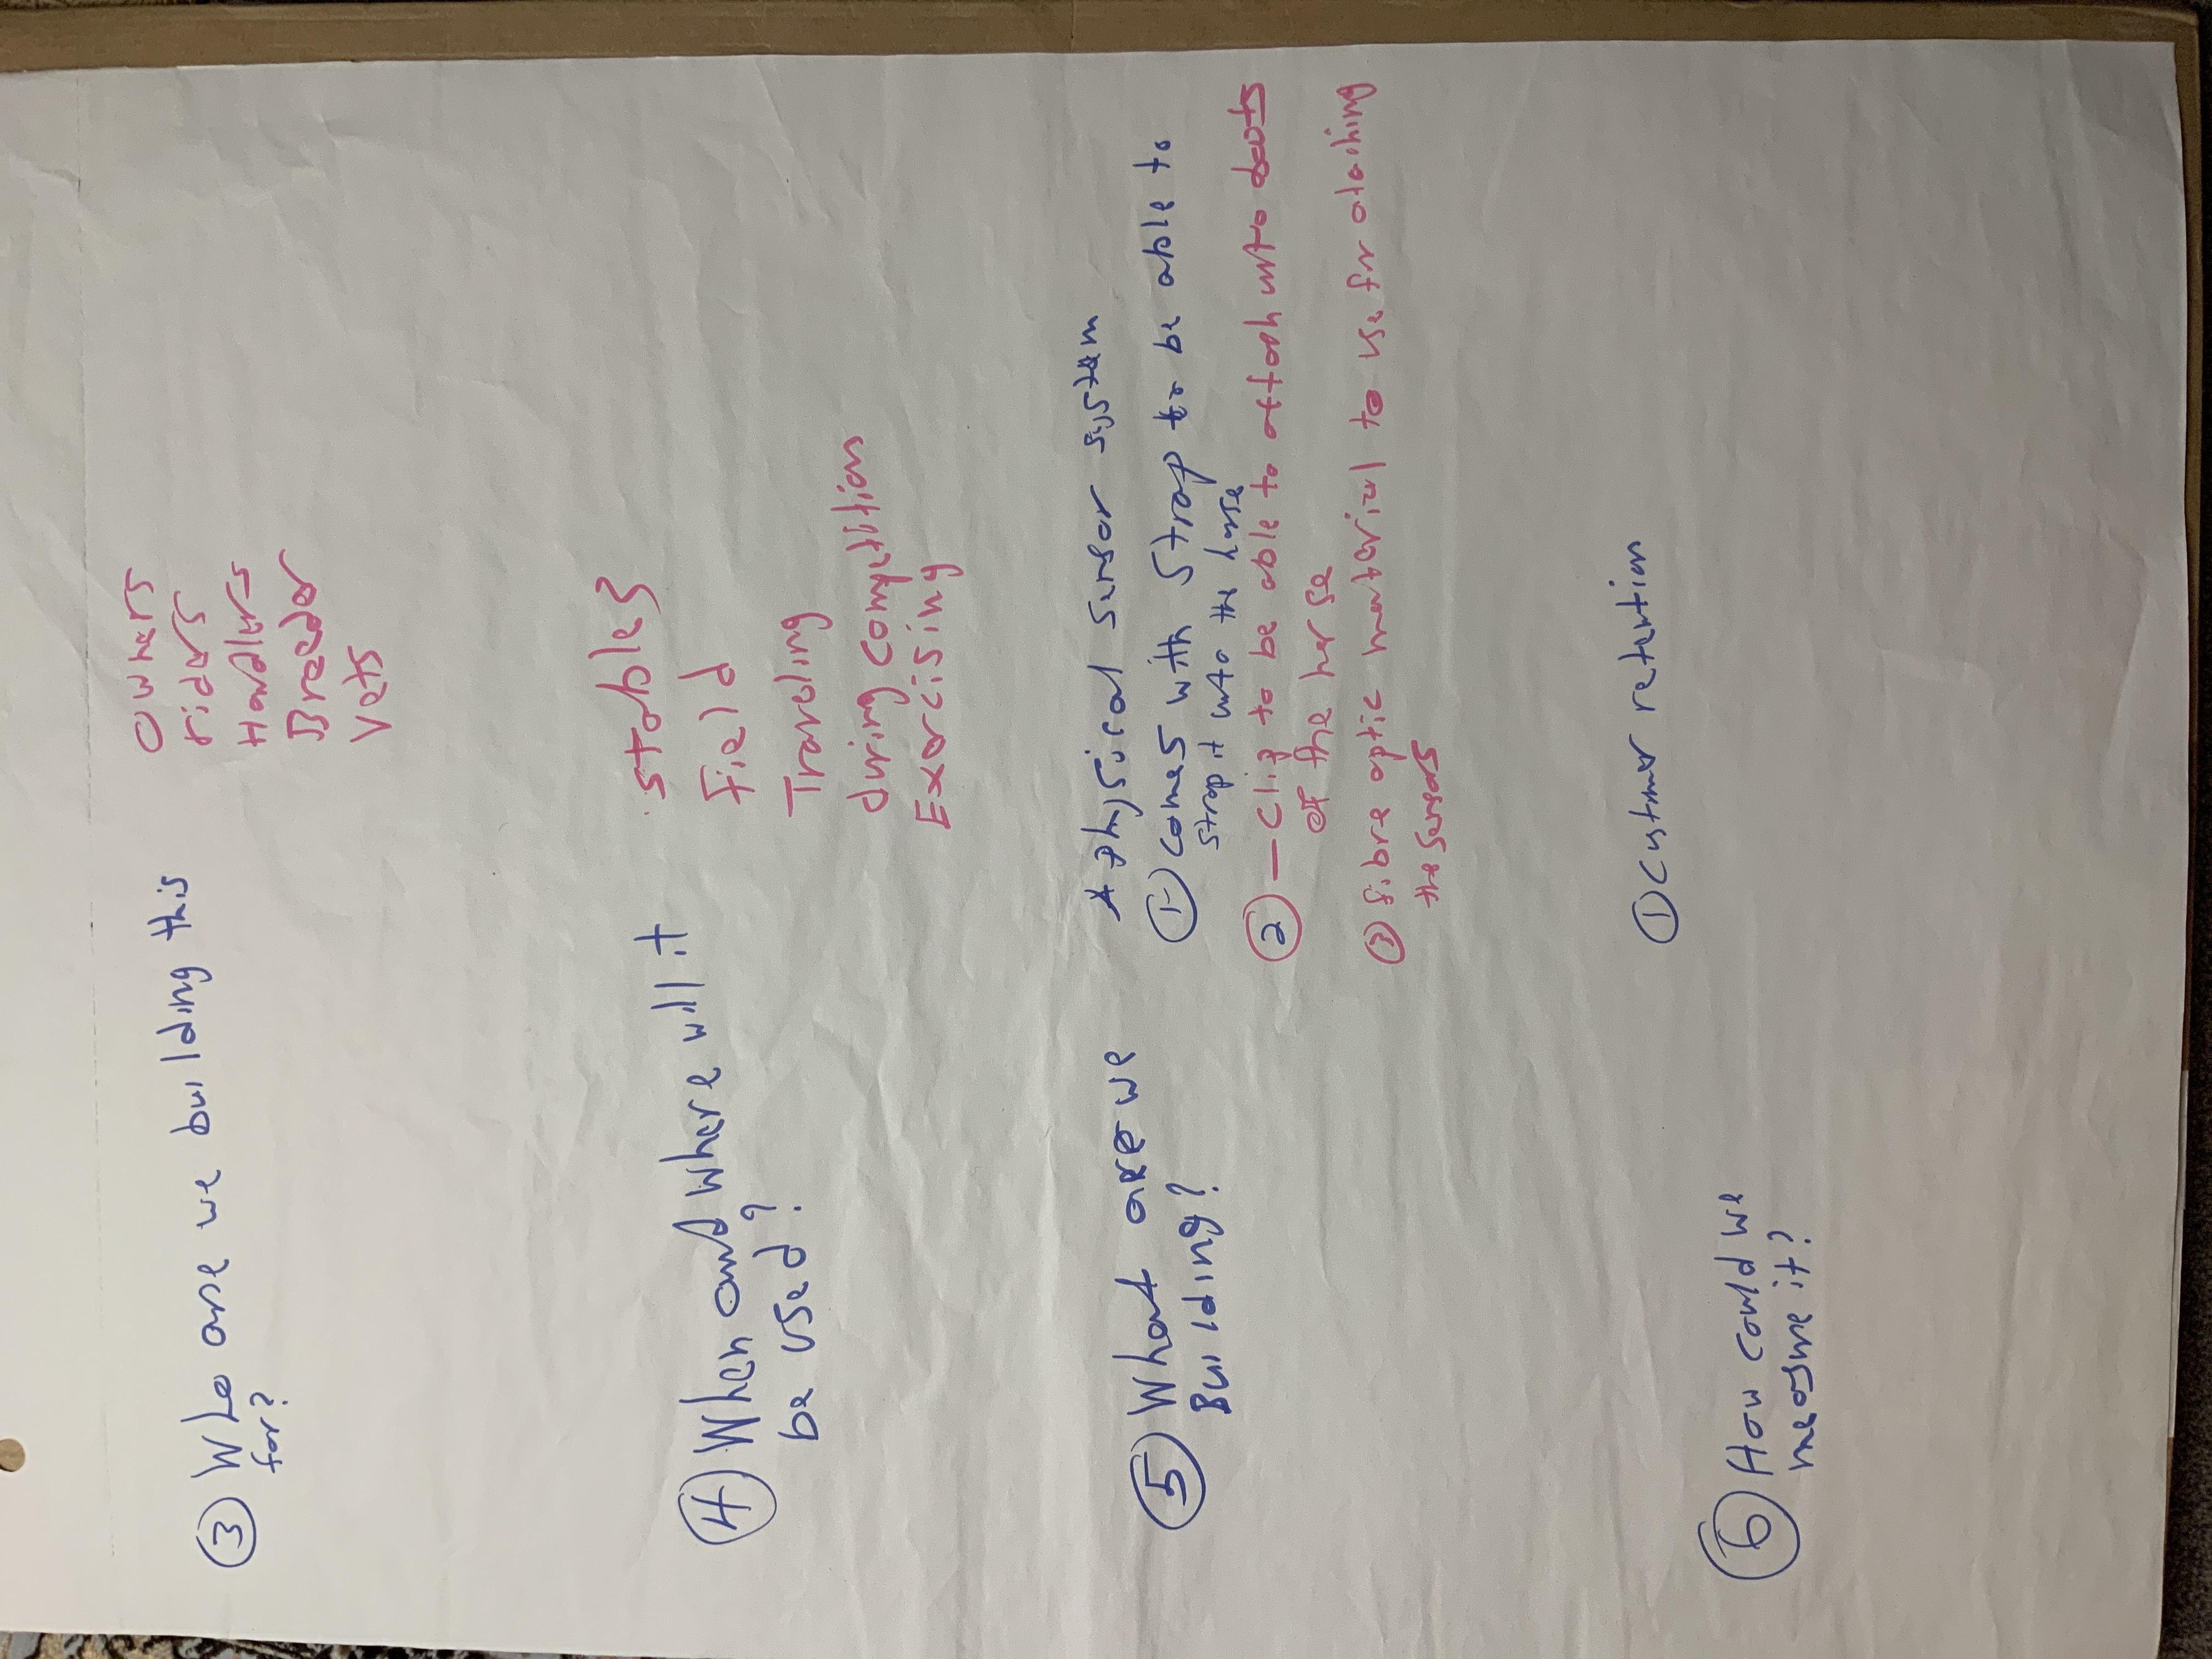 ③ Who are we building this
for?
Owners
riders
Handlers
Breeder
Vets
④ When and where will it
be used?
stables
Field
Traveling
during competition
Exercising
⑤ What are we
Building?
A physical sensor system
① comes with strap to be able to
strap it unto the horse
② — Clip to be able to attach unto boots
of the horse
③ fibre optic material to use for ataching
the sensors
① Customer retention
⑥ How could we
measure it?